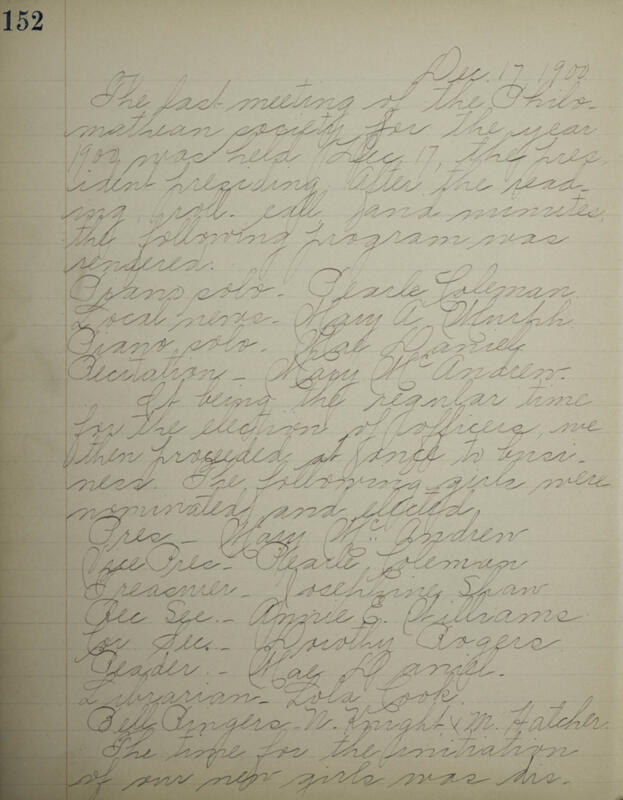 152
Dec. 17, 1900
The last meeting of the Philo-
mathean society for the year
1900 was held Dec. 17, the pres-
ident presiding. After the read-
ing, roll-call and minutes,
the following program was
rendered.
Piano solo - Pearle Coleman.
Local news - Mary A. Murph.
Piano solo - Mae Daniel
Recitation - Mary McAndrew.
It being the regular time
for the election of officers, we
then proceeded at once to busi-
ness. The following girls were
nominated and elected
Pres - Mary McAndrew
Vice Pres - Pearle Coleman
Treasurer - Josephine Shaw
Rec Sec. - Annie E. Williams
Cor Sec. - Dorothy Rogers
Reader - Mae Daniel.
Librarian - Lola Cook.
Bell Ringers - N. Knight & M. Hatcher.
The time for the initiation
of our new girls was dis-